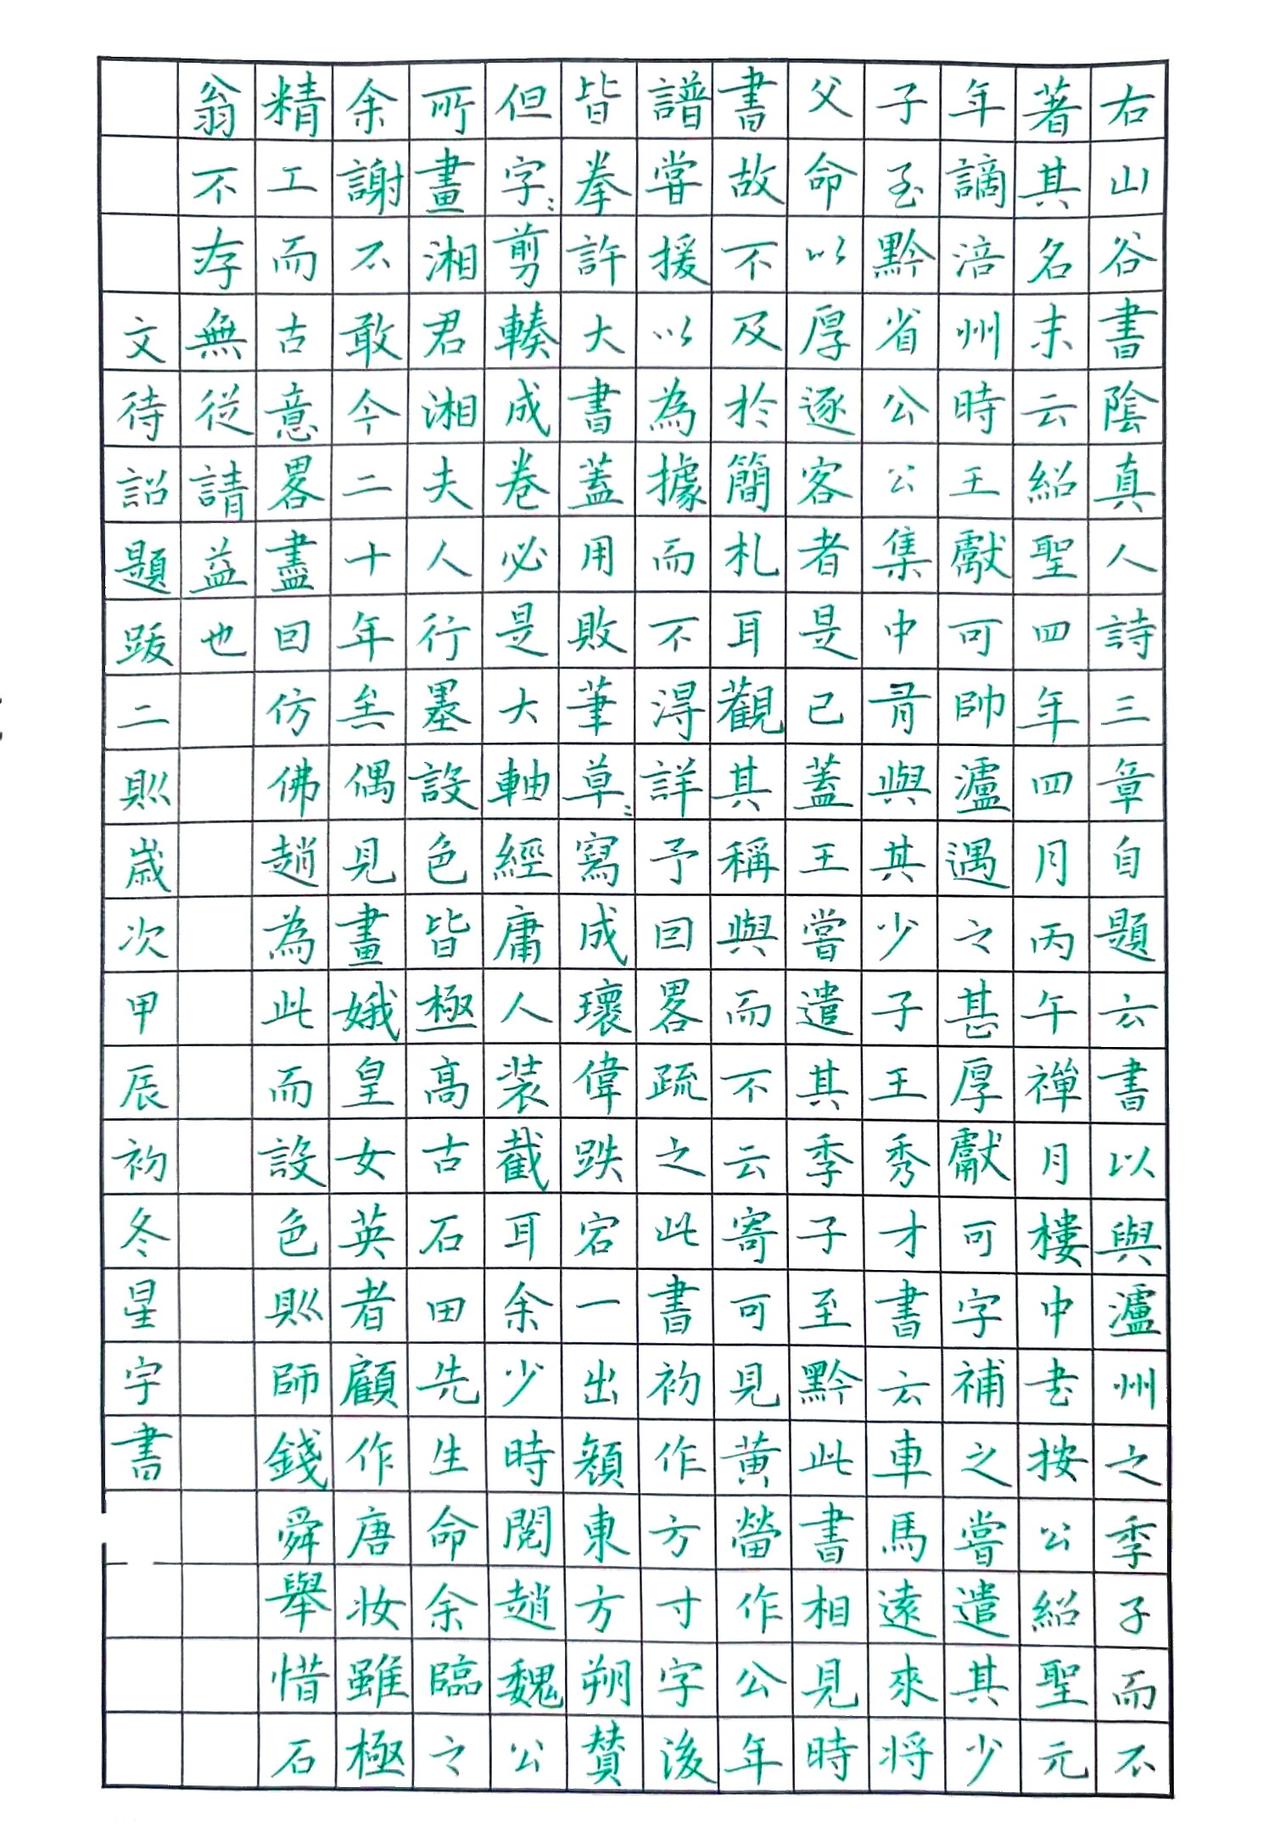 右山谷書陰真人詩三章自題云書以與瀘州之季子而不
著其名末云紹聖四年四月丙午禪月樓中书按公紹聖元
年謫涪州時王獻可帥瀘遇之甚厚獻可字補之嘗遣其少
子至黔省公公集中有與其少子王秀才書云車馬遠來将
父命以厚逐客者是已蓋王嘗遣其季子至黔此書相見時
書故不及於簡札耳觀其稱與而不云寄可見黄䇦作公年
譜嘗援以為據而不得詳予回畧疏之此書初作方寸字後
皆拳許大書蓋用敗筆草〻寫成瓌偉跌宕一出顏東方朔賛
但字〻剪輳成卷必是大軸經庸人装截耳余少時閱趙魏公
所畫湘君湘夫人行墨設色皆極高古石田先生命余臨之
余謝不敢今二十年矣偶見畫娥皇女英者顧作唐妆雖極
精工而古意畧盡回仿佛趙為此而設色則師錢舜舉惜石
翁不存無從請益也
文待詔題跋二則歲次甲辰初冬星宇書